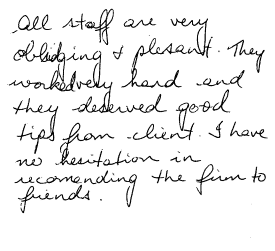 All staff are very
obliging & plesant. They
worked very hard and
they deserved good
tips from client. I have
no hesitation in
recomending the firm to
friends.